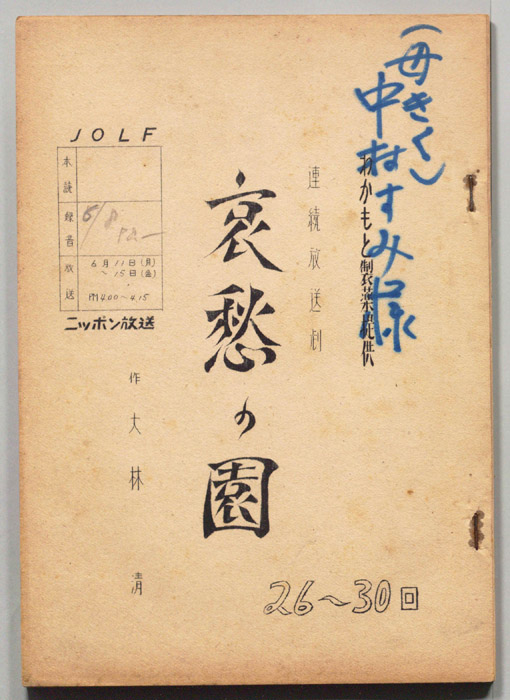 （母きく）
中村すみ様
わかもと製薬提供
連続放送劇
哀愁の園
作 大林 清
26〜30回
JOLF
本読
録音 5/8
放送 6月11日(月)
〜15日(金)
PM4.00〜4.15
ニッポン放送